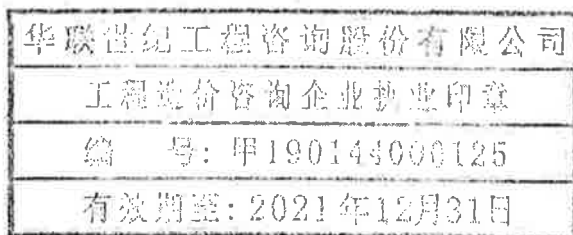 华联世纪工程咨询股份有限公司
工程造价咨询企业执业印章
编 号: 甲190144000125
有效期至: 2021年12月31日